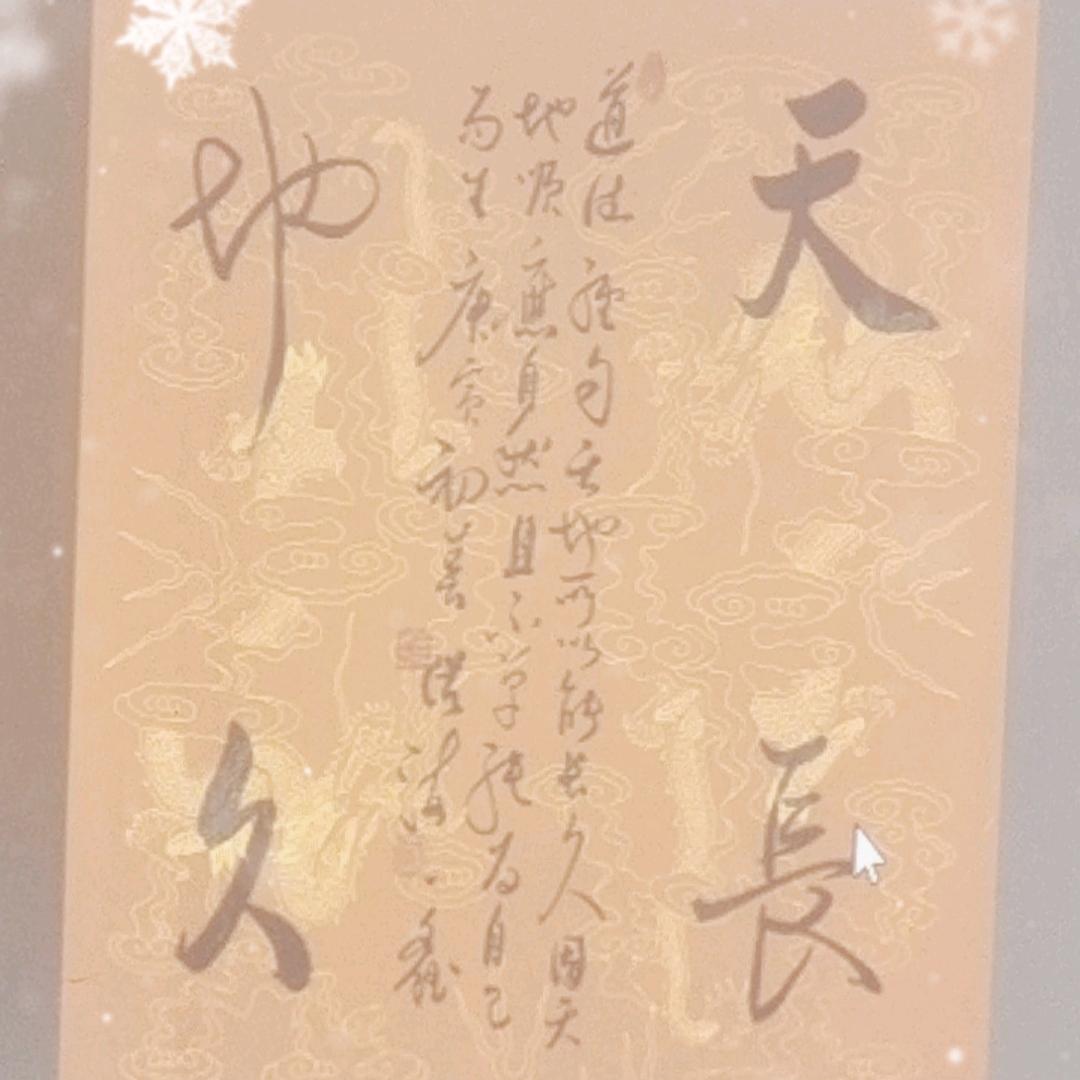 天長
經句天地所以能長久因天
地順應自然且不單獨為自己
而生庚寅初
地久